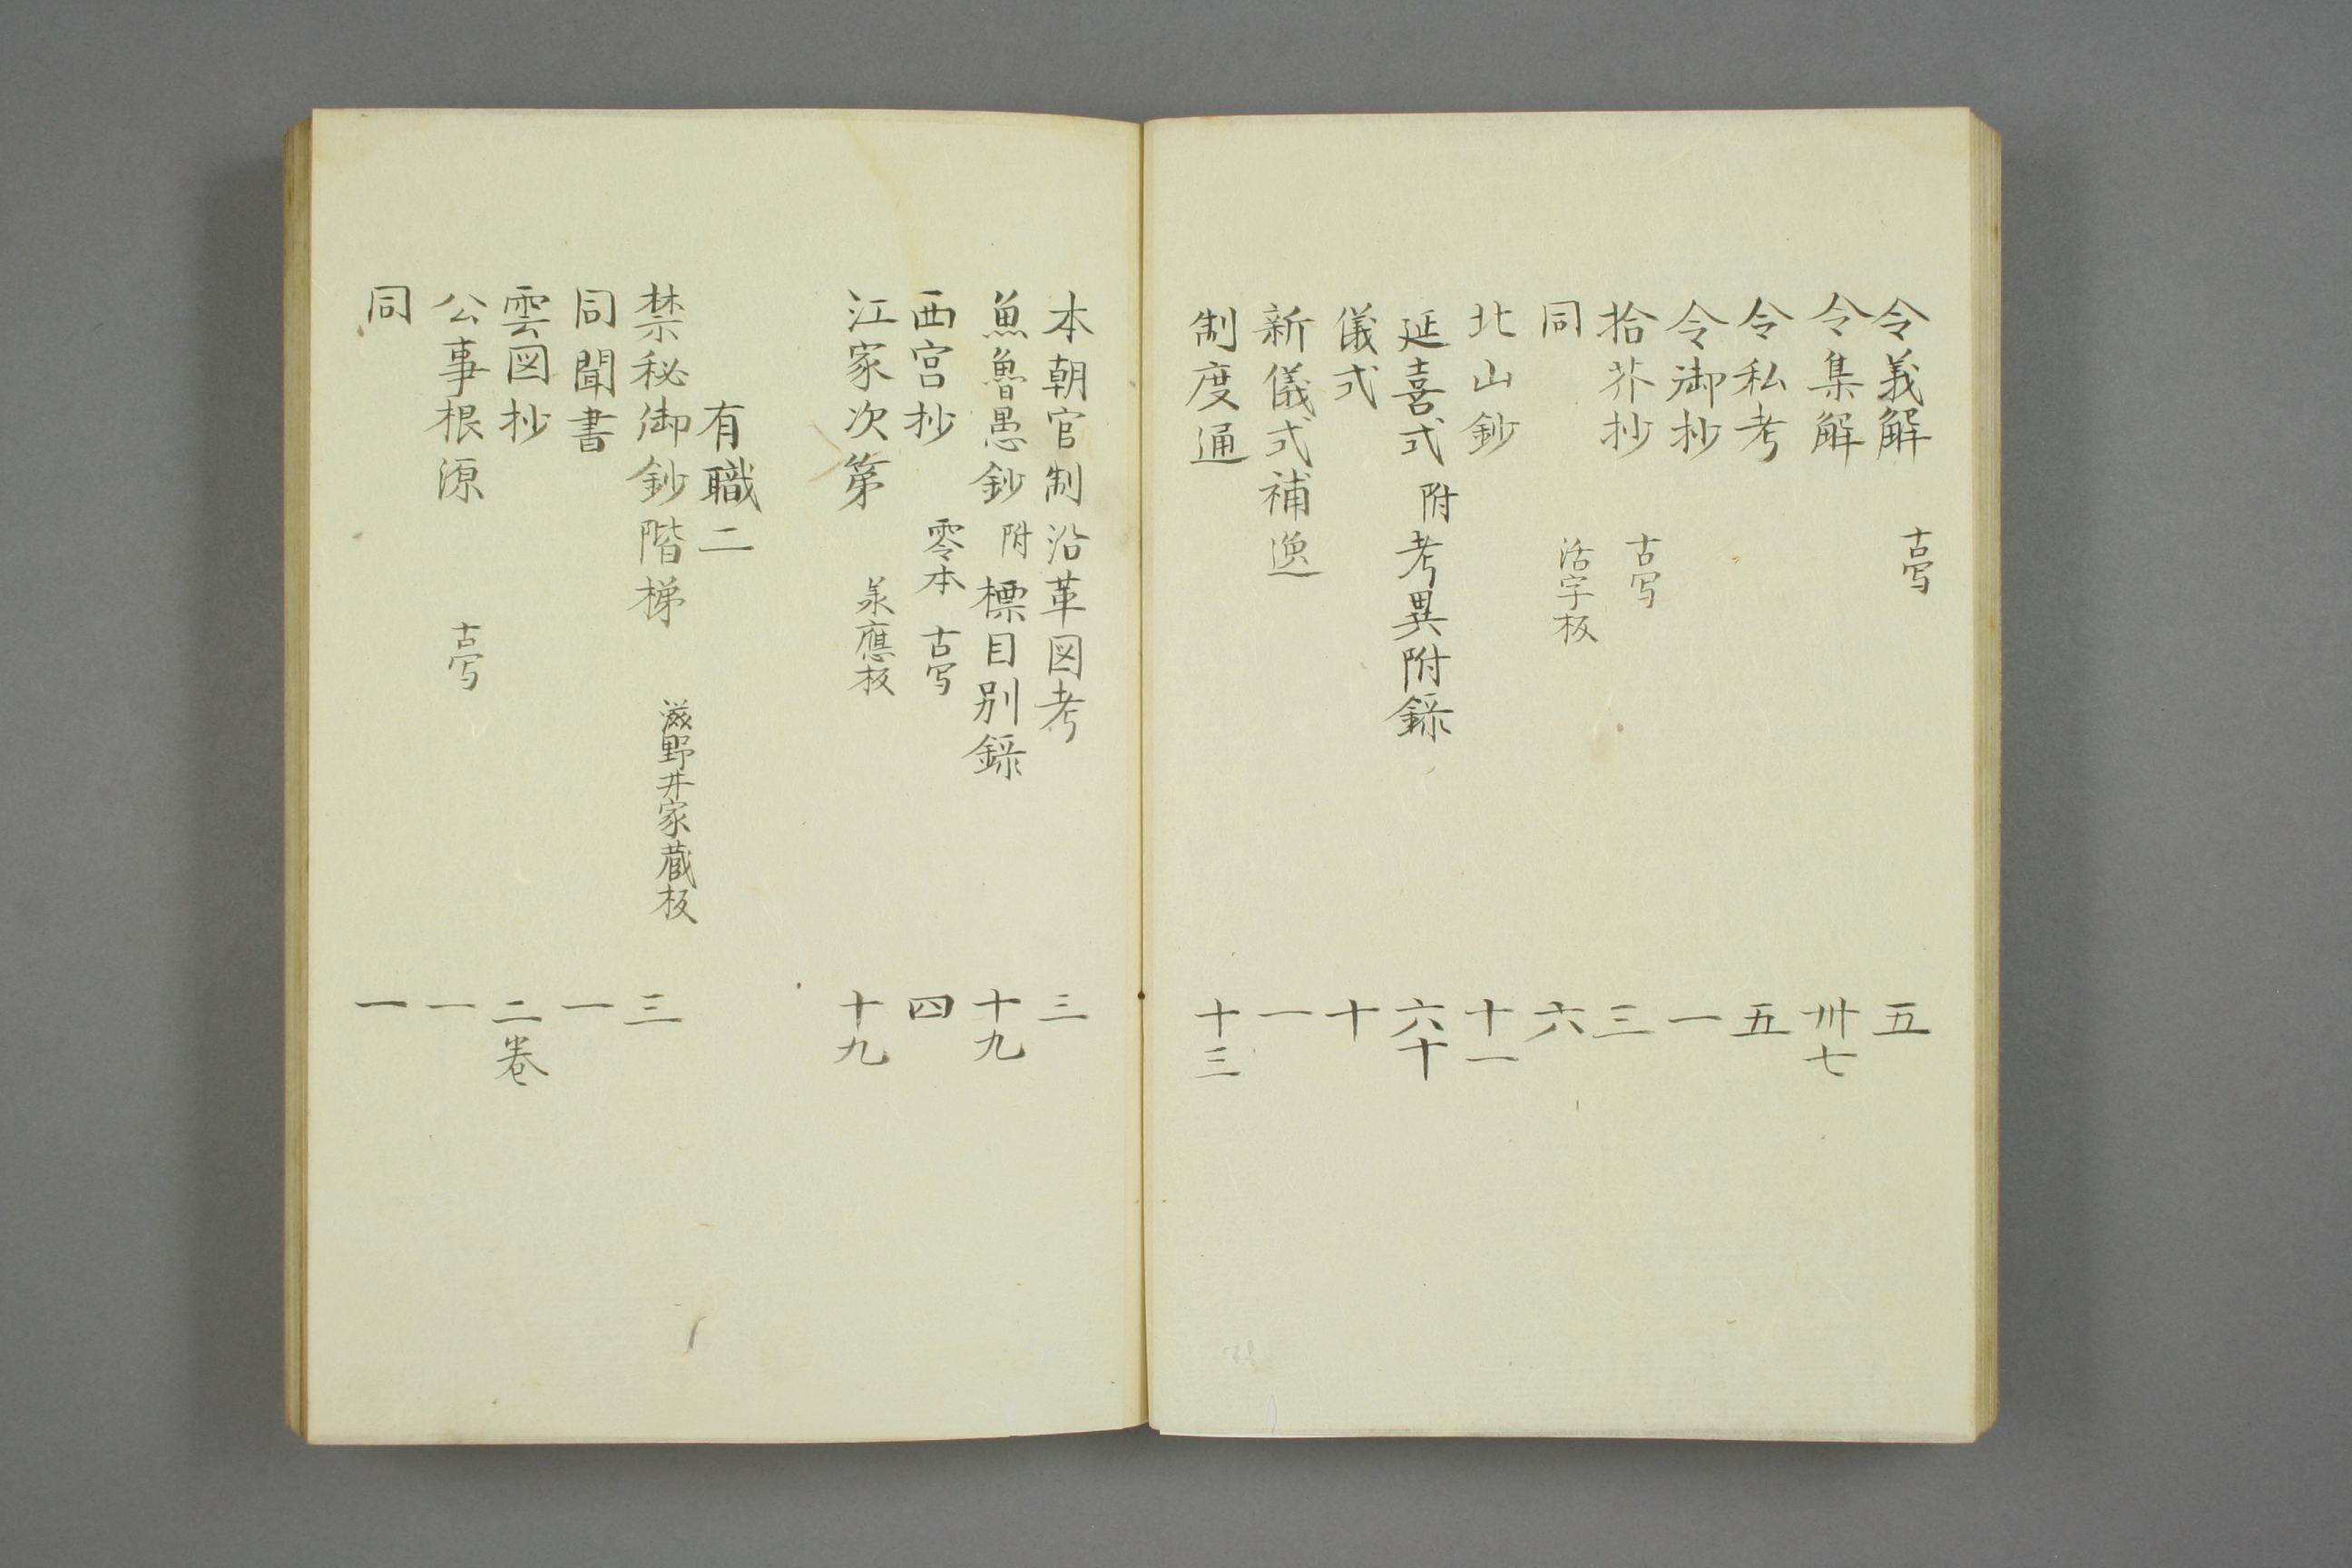 令義解 古写 五
令集解 卅七
令私考 五
令御抄 一
拾芥抄 古写 三
同 活字板 六
北山鈔 十一
延喜式 附考異附録 六十
儀式 十
新儀式補逸 一
制度通 十三
本朝官制沿革図考 三
魚魯愚鈔 附標目別録 十九
西宮抄 零本 古写 四
江家次第 承應板 十九
有職二
禁秘御鈔階梯 滋野井家蔵板 三
同聞書 一
雲図抄 二巻
公事根源 古写 一
同 一